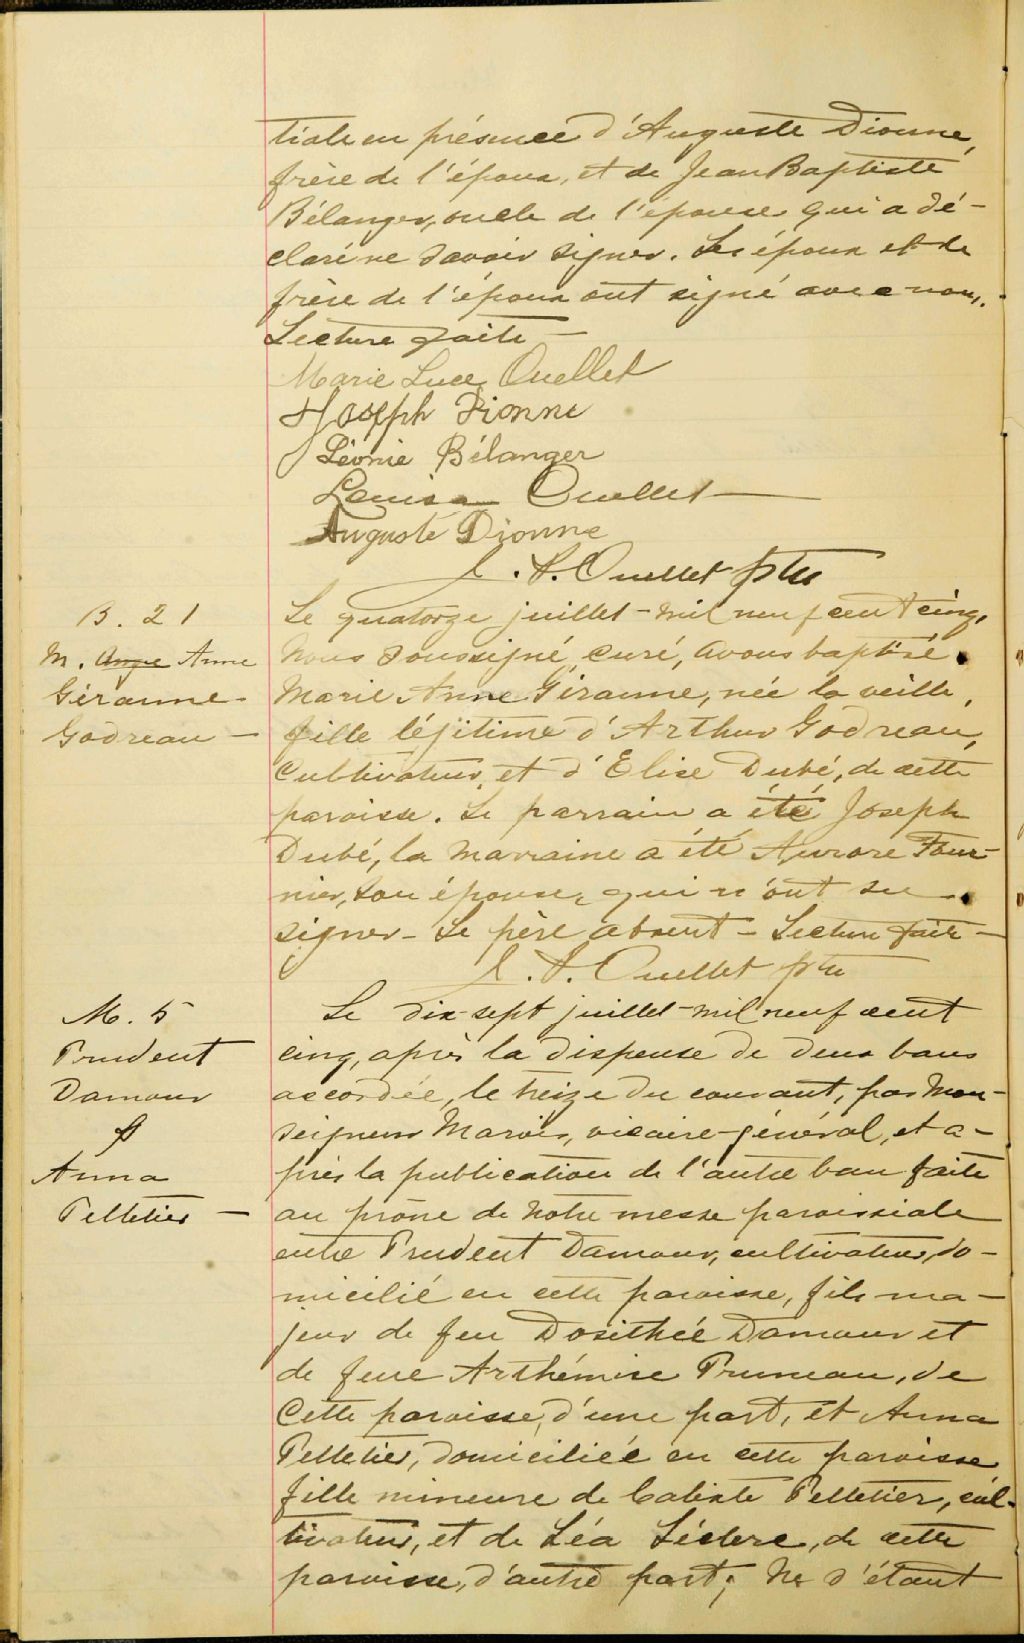 tiale en présence d'Auguste Dionne,
frère de l'époux, et de Jean Baptiste
Bélanger, oncle de l'épouse qui a dé-
claré ne savoir signer. Les époux et le
frère de l'époux ont signé avec nous.
Lecture faite —
Marie Luce Ouellet
Joseph Dionne
Léonie Bélanger
Louisa Ouellet —
Auguste Dionne
J. A. Ouellet ptre
B. 21
M. Ange Anne
Géranne
Godreau —
Le quatorze juillet - mil neuf cent cinq,
Nous soussigné, curé, avons baptisé
Marie Anne Géranne, née la veille,
fille légitime d'Arthur Godreau,
Cultivateur, et d'Elise Dubé, de cette
paroisse. Le parrain a été Joseph
Dubé, la marraine a été Aurore Four-
nier, son épouse, qui n'ont su
signer - Le père absent - Lecture faite —
J. A. Ouellet ptre
M. 5
Prudent
Damour
&
Anna
Pelletier —
Le dix-sept juillet - mil neuf cent
cinq, après la dispense de deux bans
accordée, le treize du courant, par Mon-
seigneur Marois, vicaire-général, et a-
près la publication de l'autre ban faite
au prône de notre messe paroissiale
entre Prudent Damour, cultivateur, do-
micilié en cette paroisse, fils ma-
jeur de feu Dosithée Damour et
de feue Arthémise Pruneau, de
Cette paroisse, d'une part, et Anna
Pelletier, domiciliée en cette paroisse
fille mineure de Calixte Pelletier, cul-
tivateur, et de Léa Léclerc, de cette
paroisse, d'autre part; Ne s'étant